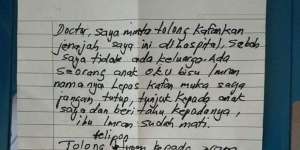 Doctor, saya minta tolong kafankan
jenajah saya ini di hospital, sebab
saya tidak ada keluarga. Ada
seorang anak oku bisu Imran
namanya lepas kafan muka saya
jangan tutup, tunjuk kepada anak
saya dan beri tahu kepadanya,
ibu Imran sudah mati.
telipon
Tolong kepada